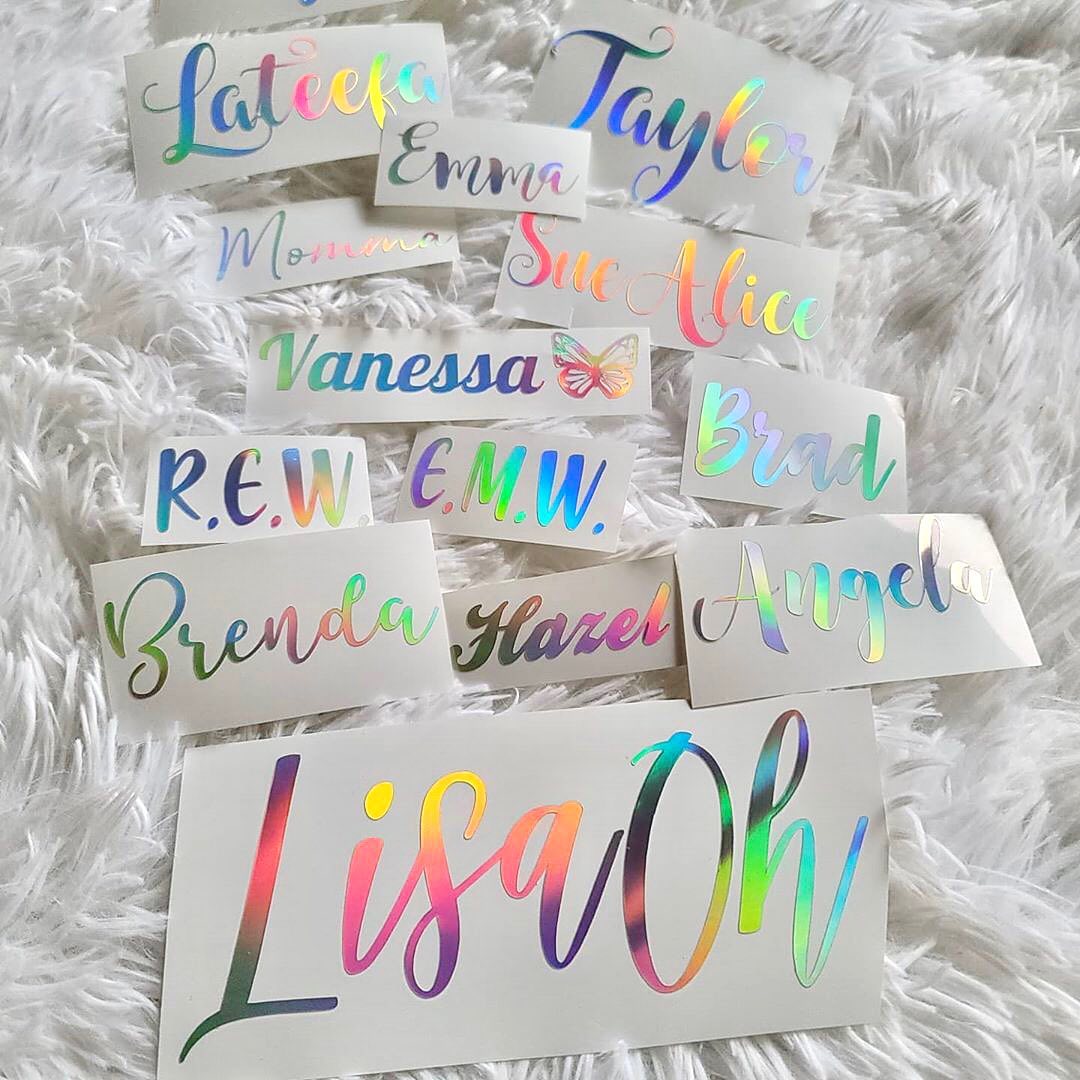 Lateefa
Taylor
Emma
Momma
Sue Alice
Vanessa
Brad
R.E.W.
E.M.W.
Brenda
Hazel
Angela
LisaOh